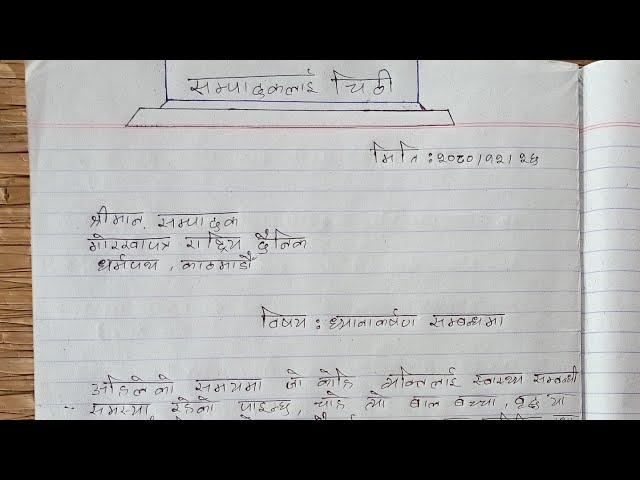 सम्पादकलाई चिठी
मिति : २०८०/१२/२६
श्रीमान्, सम्पादक
गोरखापत्र राष्ट्रिय दैनिक
धर्मपथ, काठमाडौं
विषय : ध्यानाकर्षण सम्बन्धमा
अहिलेको समयमा जो कोहि व्यक्तिलाई स्वास्थ्य सम्बन्धी
समस्या रहेको पाइन्छ, चाहे त्यो बाल बच्चा, वृद्ध या